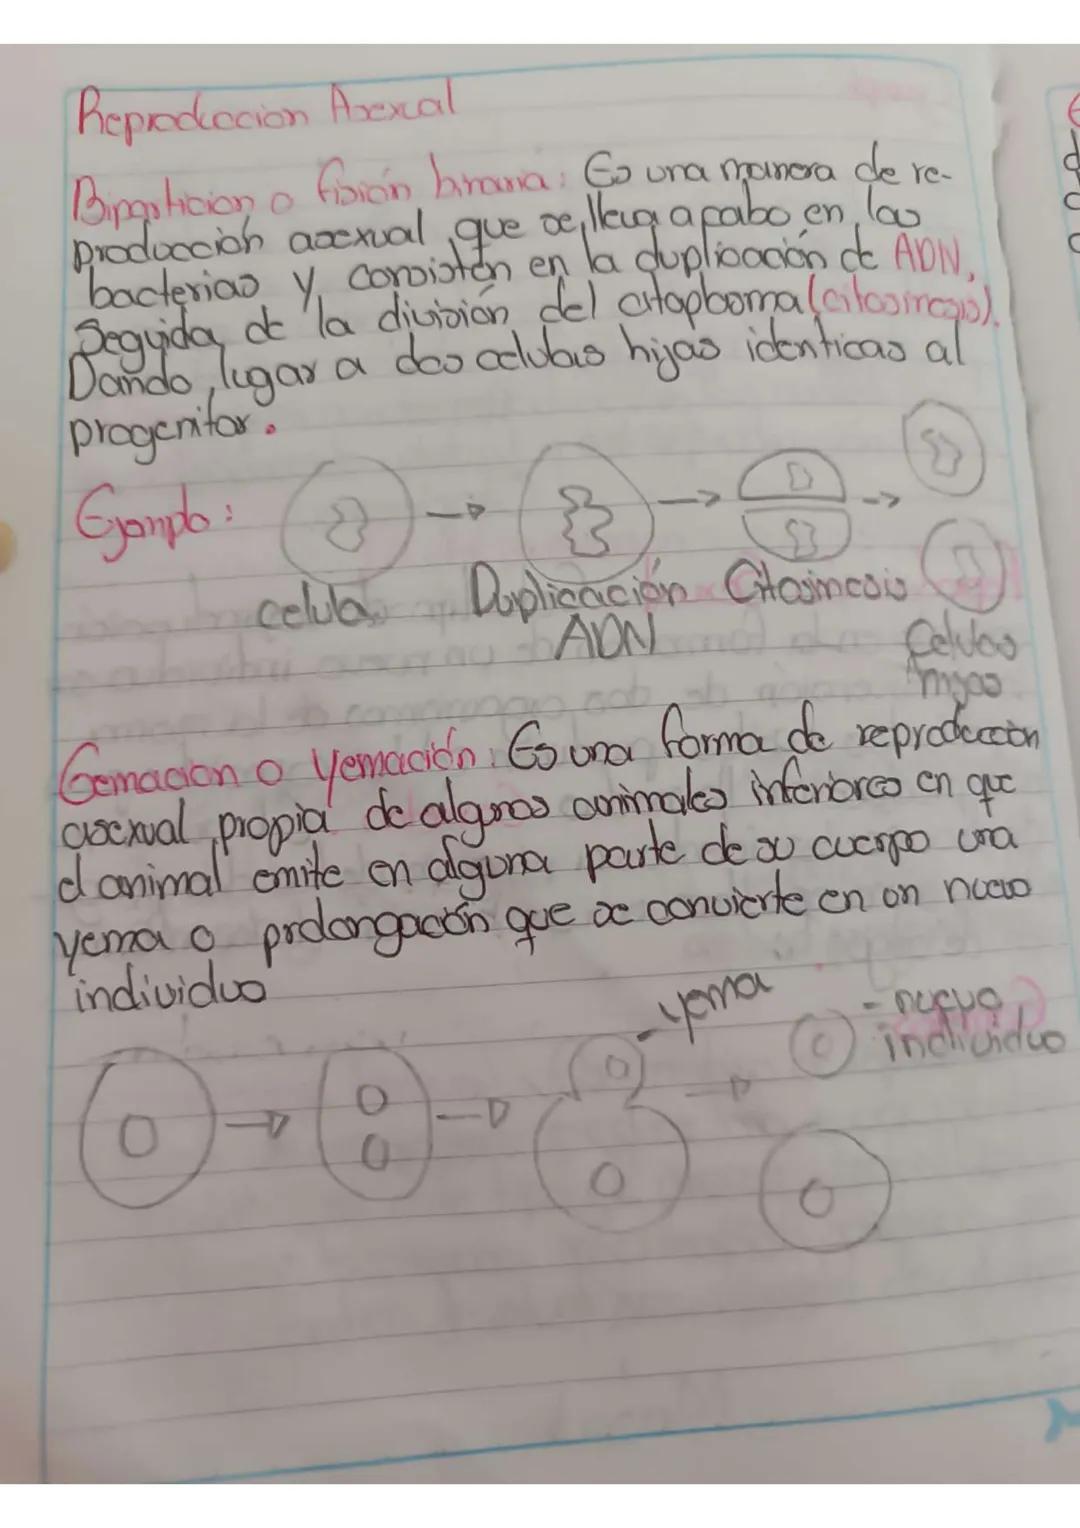 Reproduccion Asexual
Bipartición o fisión binaria: Es una manera de re-
producción asexual que se lleva a cabo en las
bacterias y consisten en la duplicación de ADN,
Seguida de la división del citoplasma (citosinesis).
Dando lugar a dos celulas hijas identicas al
progenitor.
Ejemplo:
celula
Duplicación
ADN
Citosinesis
Celulas
hijas
Gemacion o Yemación: Es una forma de reproduccion
asexual propia de algunos animales inferiores en que
el animal emite en alguna parte de su cuerpo una
yema o prolongación que se convierte en un nuevo
individuo
- yema
- nuevo
individuo